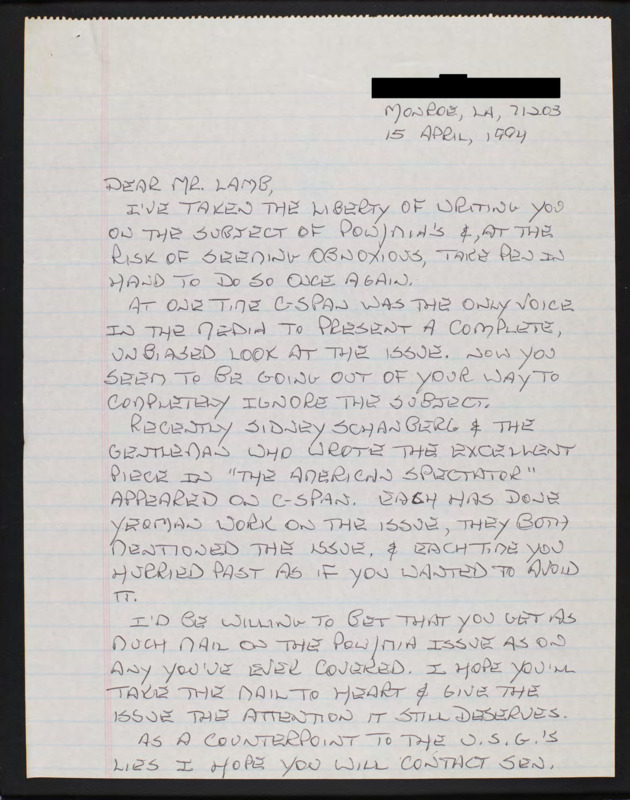 MONROE, LA, 71203
15 APRIL, 1994
DEAR MR. LAMB,
I'VE TAKEN THE LIBERTY OF WRITING YOU
ON THE SUBJECT OF POW/MIA'S &, AT THE
RISK OF SEEMING OBNOXIOUS, TAKE PEN IN
HAND TO DO SO ONCE AGAIN.
AT ONE TIME C-SPAN WAS THE ONLY VOICE
IN THE MEDIA TO PRESENT A COMPLETE,
UNBIASED LOOK AT THE ISSUE. NOW YOU
SEEM TO BE GOING OUT OF YOUR WAY TO
COMPLETELY IGNORE THE SUBJECT.
RECENTLY SIDNEY SCHANBERG & THE
GENTLEMAN WHO WROTE THE EXCELLENT
PIECE IN "THE AMERICAN SPECTATOR"
APPEARED ON C-SPAN. EACH HAS DONE
YEOMAN WORK ON THE ISSUE, THEY BOTH
MENTIONED THE ISSUE, & EACH TIME YOU
HURRIED PAST AS IF YOU WANTED TO AVOID
IT.
I'D BE WILLING TO BET THAT YOU GET AS
MUCH MAIL ON THE POW/MIA ISSUE AS ON
ANY YOU'VE EVER COVERED. I HOPE YOU'LL
TAKE THE MAIL TO HEART & GIVE THE
ISSUE THE ATTENTION IT STILL DESERVES.
AS A COUNTERPOINT TO THE U.S.G.'S
LIES I HOPE YOU WILL CONTACT SEN.